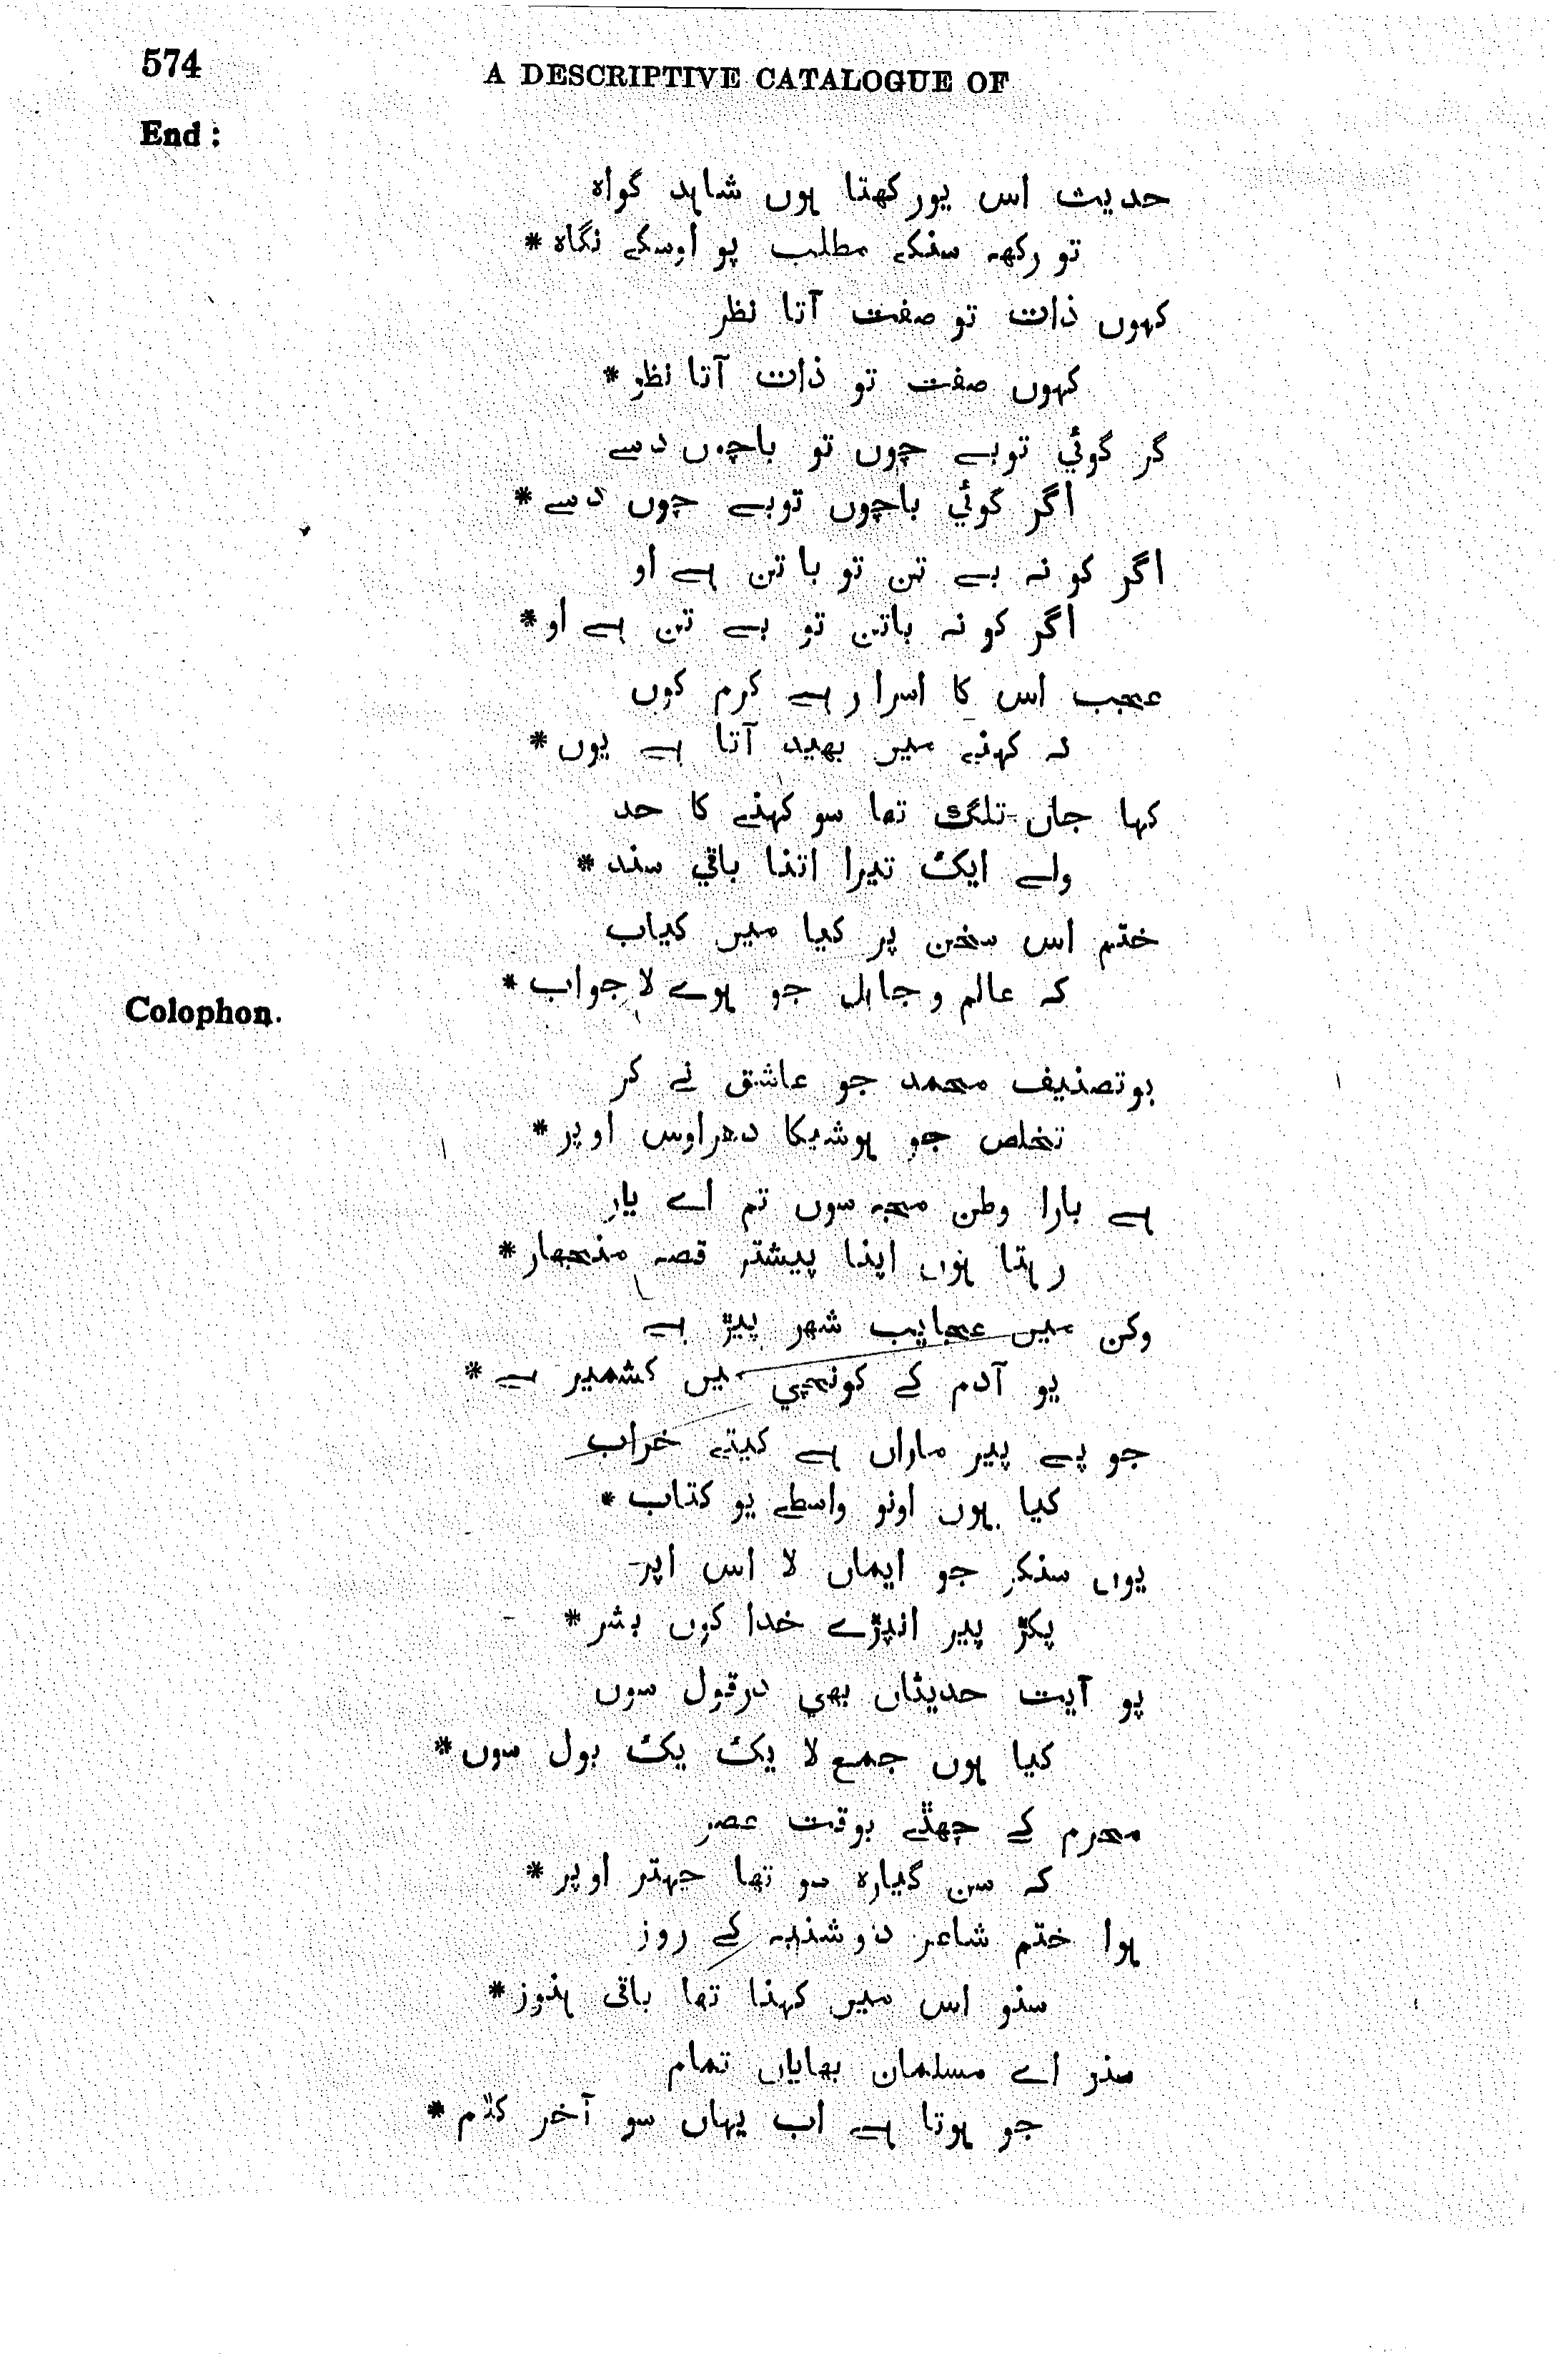 574
A DESCRIPTIVE CATALOGUE OF
End :
حديث اس يور كهتا ہوں شاہد گواه
تو ركهہ سنكے مطلب پو اوسكے نگاه *
كہوں ذات تو صفت آتا نظر
كہوں صفت تو ذات آتا نظر *
گر گوئي توبے چوں تو باچوں دسے
اگر گوئي باچوں توبے چوں دسے *
اگر كو نہ بے تن تو باتن ہے او
اگر كو نہ باتن تو بے تن ہے او *
عجب اس كا اسرار ہے كرم كوں
نہ كہنے ميں بهيد آتا ہے يوں *
كہا جاں تلگ تها سو كہنے كا حد
ولے ايک تيرا اتنا باقي سند *
ختم اس سخن پر كيا ميں كياب
كہ عالم و جاہل جو ہوے لا جواب *
Colophon.
بو تصنيف محمد جو عاشق نے كر
تخلص جو ہوشيكا دهر اوس اوپر *
ہے بارا وطن مجہ سوں تم اے يار
رہتا ہوں اپنا پيشتر قصہ منجهار *
وكن ميں عجايب شهر پيڑ ہے
يو آدم كے كونچي ميں كشمير ہے *
جو پے پير ماراں ہے كيتے خراب
كيا ہوں اونو واسطے يو كتاب *
يوں سنكر جو ايماں لا اس اپر
پكڑ پير انپڑے خدا كوں بشر *
پو آيت حديثاں بهي درقول سوں
كيا ہوں جمع لا يک يک بول سوں *
محرم كے چهٹے بوقت عصر
كہ سن گياره سو تها چهتر اوپر *
ہوا ختم شاعر دوشنبہ كے روز
سنو اس ميں كہنا تها باقى ہنوز *
سنو اے مسلمان بهاياں تمام
جو ہوتا ہے اب يہاں سو آخر كلام *